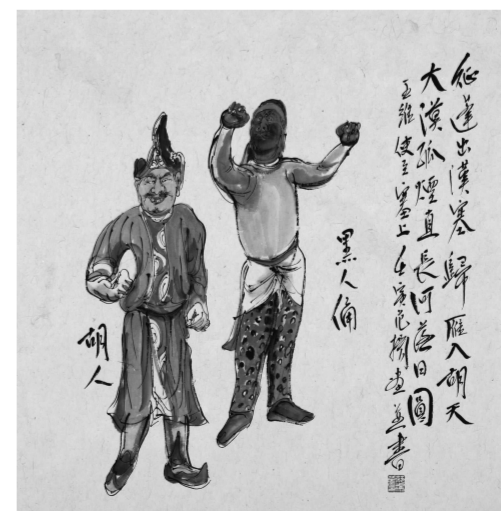 征蓬出漢塞歸雁入胡天
大漠孤煙直長河落日圓
王維使至塞上壬寅范畫並書
黑人俑
胡人